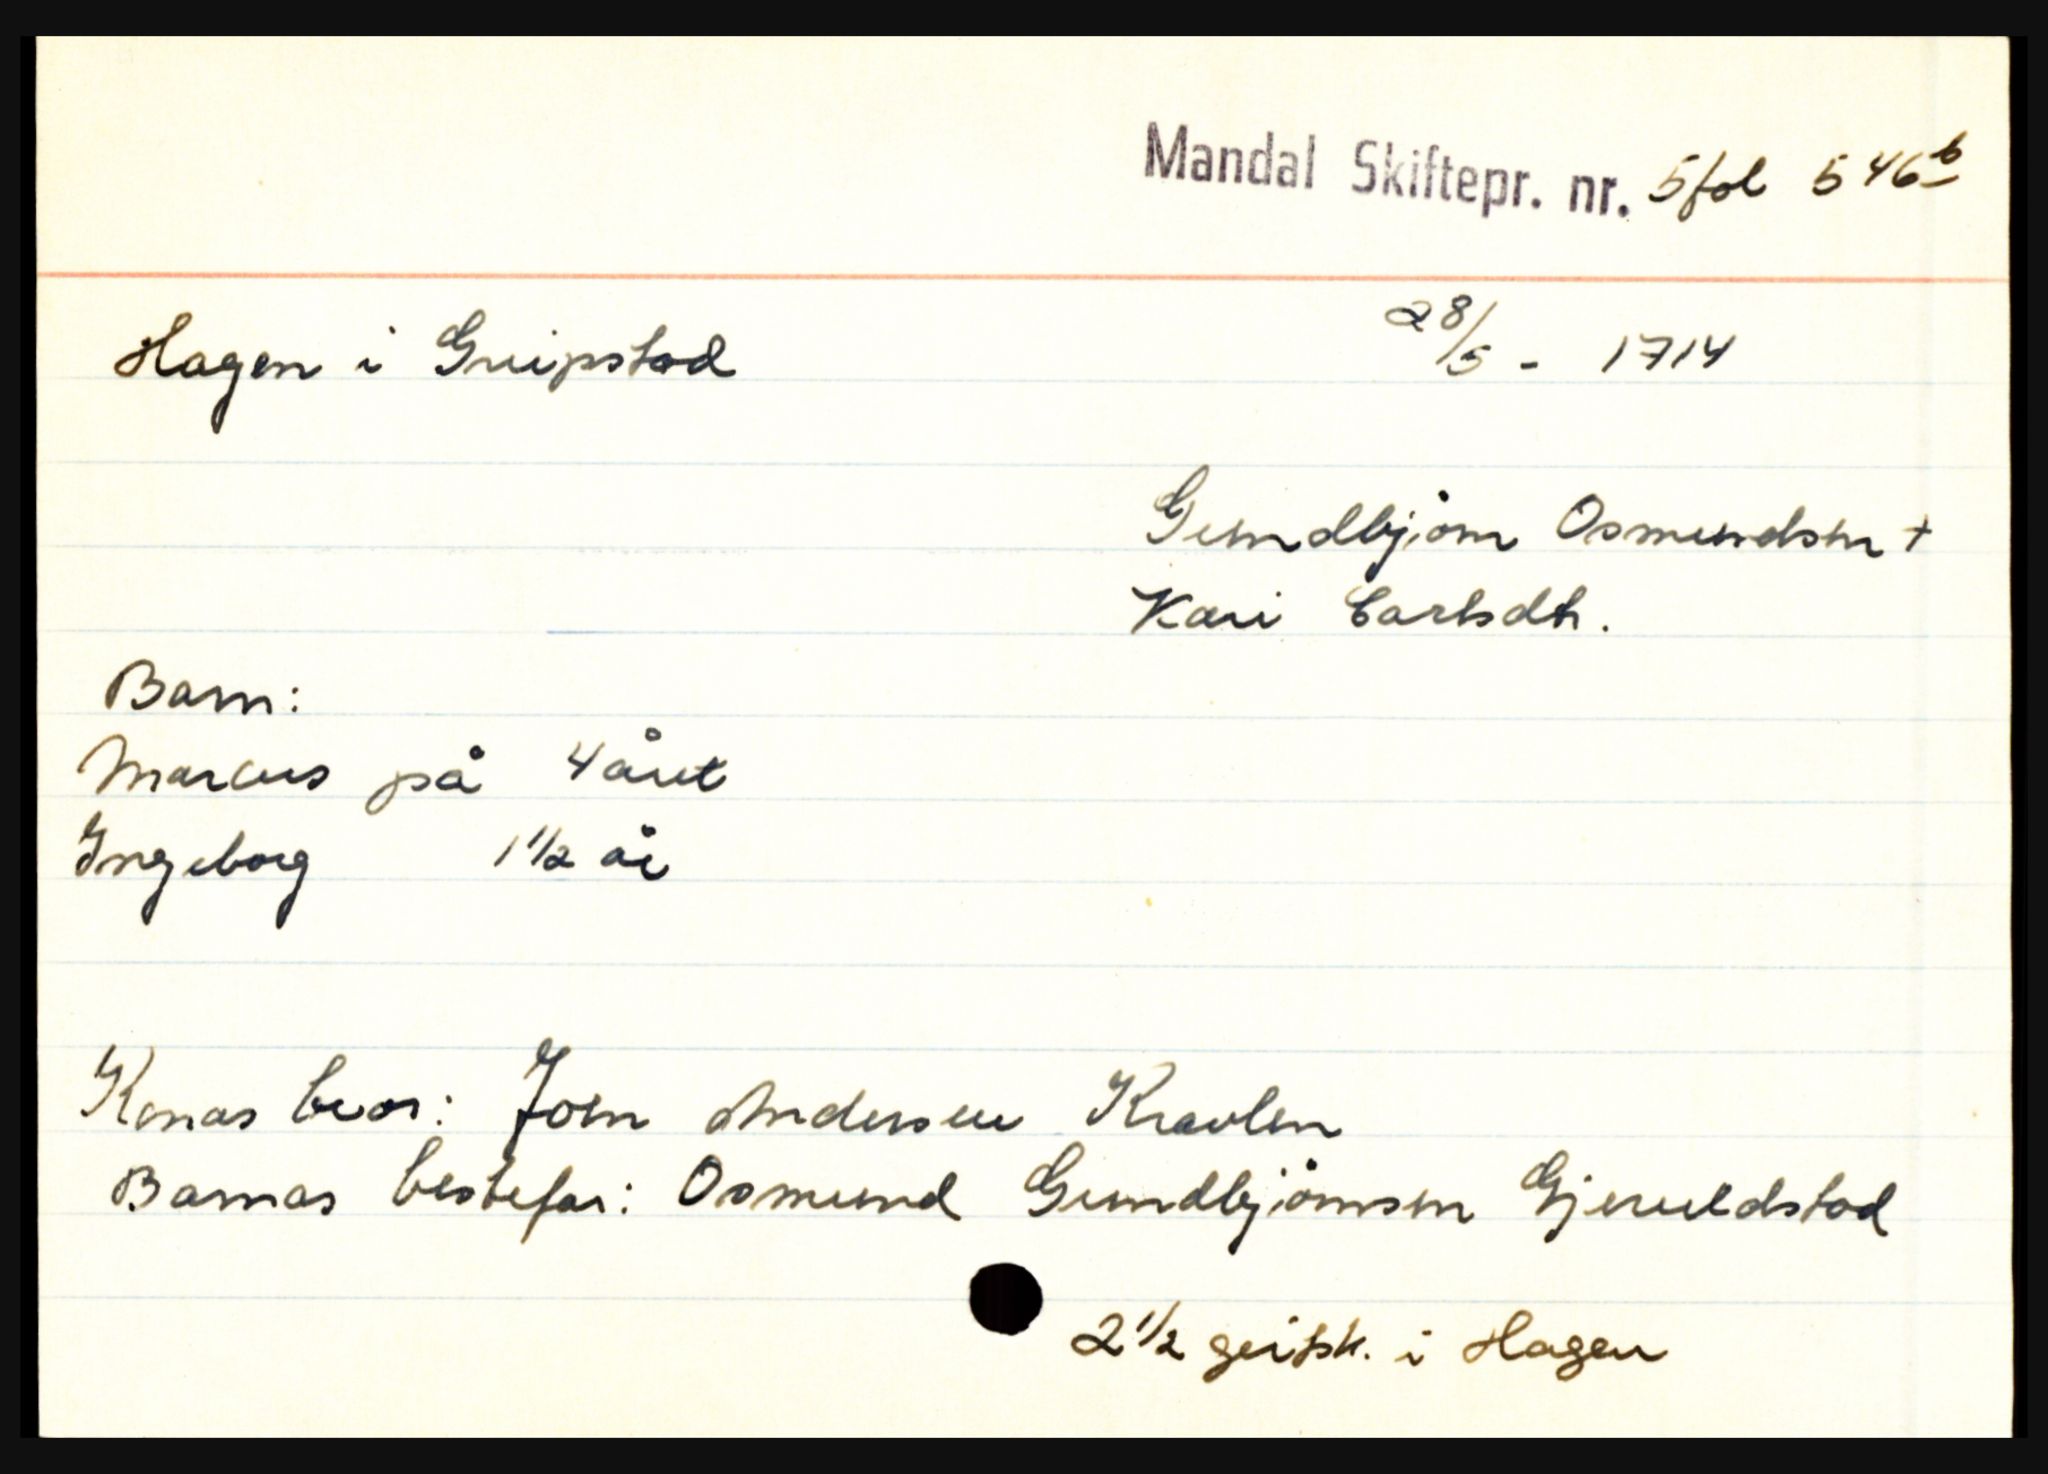 Mandal Skiftepr. nr. 5 fol 546b
Hagen i Greipstad 28/5 - 1714
Gundbjörn Osmundsen +
Kari Carlsdtr.
Barn:
Marcus på 4 året
Ingeborg 1 1/2 år
Konas bror: Joen Andersen Kravlen
Barnas bestefar: Osmund Gundbjörnsen Gjeruldstad
2 1/2 geitsk. i Hagen